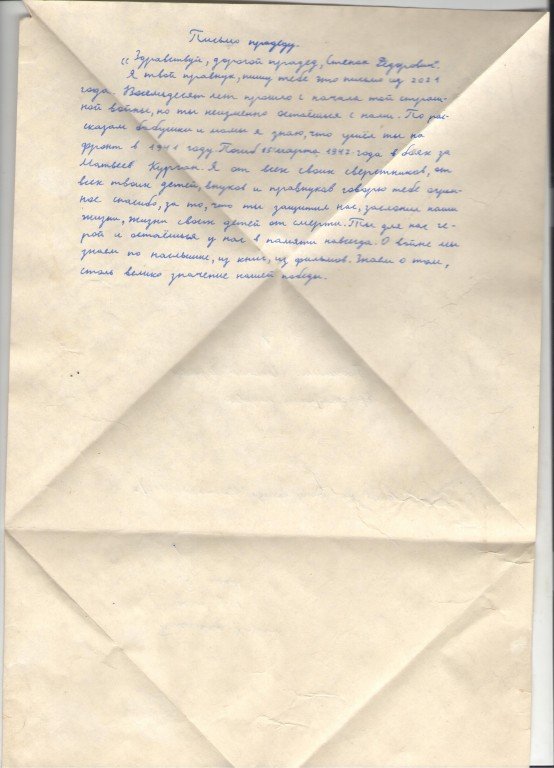 Письмо прадеду.
„Здравствуй, дорогой прадед, Степан Фёдорович".
Я твой правнук, пишу тебе это письмо из 2021
года. Восемьдесят лет прошло с начала той страш-
ной войны, но ты неизменно остаёшься с нами. По рас-
сказам бабушки и мамы я знаю, что ушёл ты на
фронт в 1941 году. Погиб 15 марта 1942 года в боях за
Матвеев Курган. Я от всех своих сверстников, от
всех твоих детей, внуков и правнуков говорю тебе огром-
ное спасибо, за то, что ты защитил нас, заслонил наши
жизни, жизни своих детей от смерти. Ты для нас ге-
рой и остаёшься у нас в памяти навсегда. О войне мы
знаем по наслышке, из книг, из фильмов. Знаем о том,
столь велико значение нашей победы.